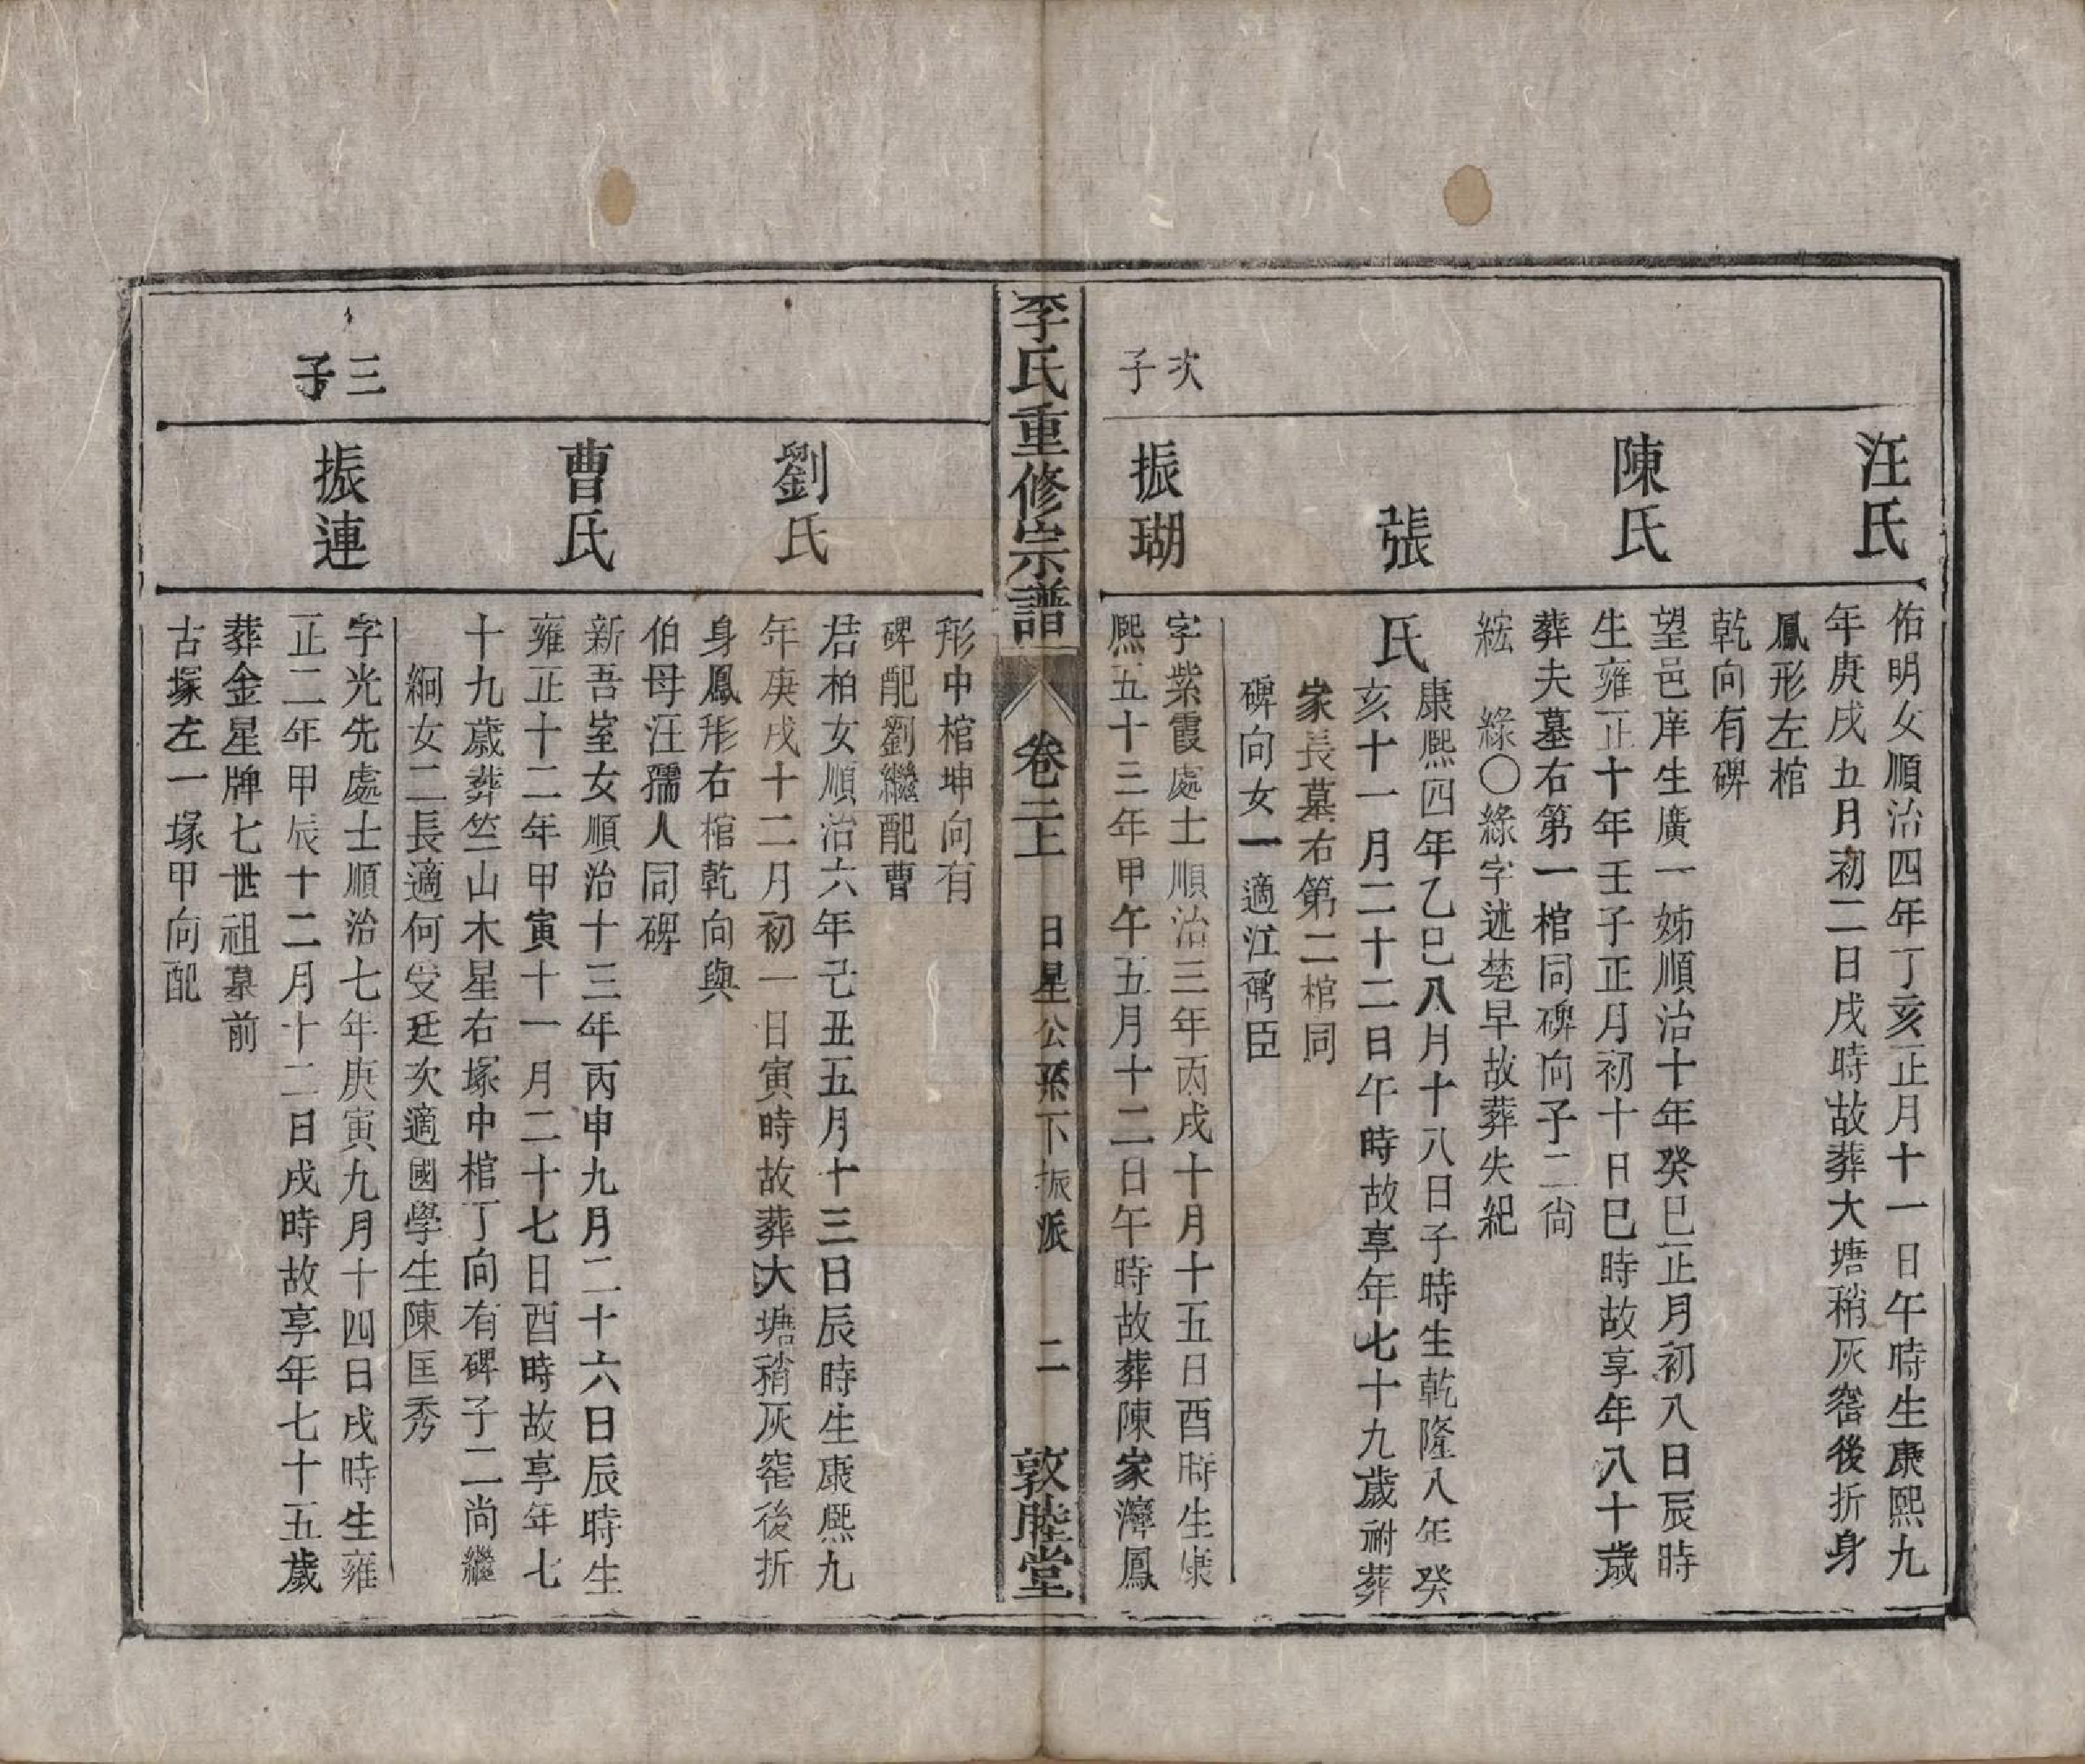 汪氏
佑明女順治四年丁亥正月十一日午時生康熙九
年庚戌五月初二日戌時故葬大塘稍灰窖後折身
鳳形左棺
乾向有碑
陳氏
望邑庠生廣一姊順治十年癸巳正月初八日辰時
生雍正十年壬子正月初十日巳時故享年八十歲
葬夫墓右第一棺同碑向子二尙
紘 綠〇綠字述楚早故葬失紀
張氏
康熙四年乙巳八月十八日子時生乾隆八年癸
亥十一月二十二日午時故享年七十九歲祔葬
家長墓右第二棺同
碑向女一適江爾臣
次子
振瑚
字紫霞處士順治三年丙戌十月十五日酉時生康
熙五十三年甲午五月十二日午時故葬陳家濟鳳
李氏重修宗譜
卷二上
日星公孫下振派
二
敦睦堂
形中棺坤向有
碑配劉繼配曹
劉氏
若柏女順治六年己丑五月十三日辰時生康熙九
年庚戌十二月初一日寅時故葬大塘稍灰窖後折
身鳳形右棺乾向與
伯母汪孺人同碑
曹氏
新吾室女順治十三年丙申九月二十六日辰時生
雍正十二年甲寅十一月二十七日酉時故享年七
十九歲葬竺山木星右塚中棺丁向有碑子二尚繼
絅女二長適何受廷次適國學生陳匡秀
三子
振連
字光先處士順治七年庚寅九月十四日戌時生雍
正二年甲辰十二月十二日戌時故享年七十五歲
葬金星牌七世祖墓前
古塚左一塚甲向配